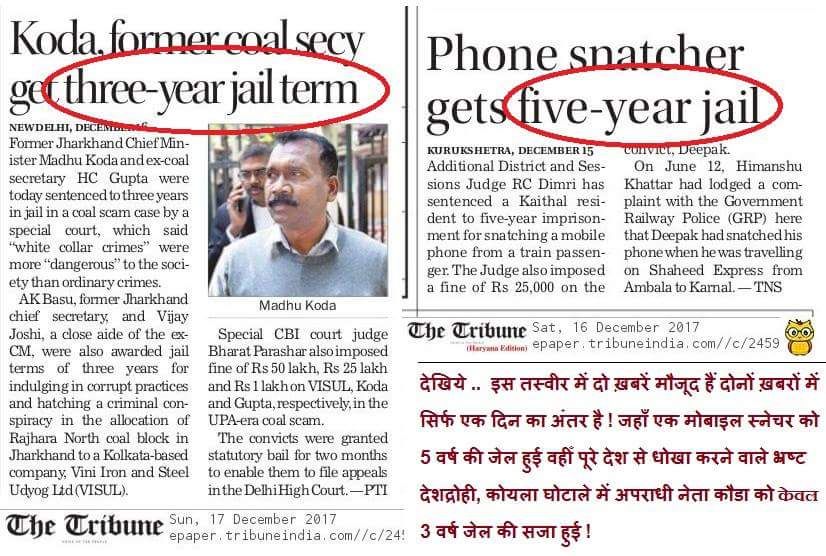 Koda, former coal secy
get three-year jail term
NEW DELHI, DECEMBER 16
Former Jharkhand Chief Min-
ister Madhu Koda and ex-coal
secretary HC Gupta were
today sentenced to three years
in jail in a coal scam case by a
special court, which said
“white collar crimes” were
more “dangerous” to the soci-
ety than ordinary crimes.
AK Basu, former Jharkhand
chief secretary, and Vijay
Joshi, a close aide of the ex-
CM, were also awarded jail
terms of three years for
indulging in corrupt practices
and hatching a criminal con-
spiracy in the allocation of
Rajhara North coal block in
Jharkhand to a Kolkata-based
company, Vini Iron and Steel
Udyog Ltd (VISUL).
Madhu Koda
Special CBI court judge
Bharat Parashar also imposed
fine of Rs 50 lakh, Rs 25 lakh
and Rs 1 lakh on VISUL, Koda
and Gupta, respectively, in the
UPA-era coal scam.
The convicts were granted
statutory bail for two months
to enable them to file appeals
in the Delhi High Court. —PTI
The Tribune
Sun, 17 December 2017
epaper.tribuneindia.com//c/245
Phone snatcher
gets five-year jail
KURUKSHETRA, DECEMBER 15
Additional District and Ses-
sions Judge RC Dimri has
sentenced a Kaithal resi-
dent to five-year imprison-
ment for snatching a mobile
phone from a train passen-
ger. The Judge also imposed
a fine of Rs 25,000 on the
convict, Deepak.
On June 12, Himanshu
Khattar had lodged a com-
plaint with the Government
Railway Police (GRP) here
that Deepak had snatched his
phone when he was travelling
on Shaheed Express from
Ambala to Karnal. — TNS
The Tribune
(Haryana Edition)
Sat, 16 December 2017
epaper.tribuneindia.com//c/2459
देखिये .. इस तस्वीर में दो ख़बरें मौजूद हैं दोनों ख़बरों में
सिर्फ एक दिन का अंतर है ! जहाँ एक मोबाइल स्नेचर को
5 वर्ष की जेल हुई वहीं पूरे देश से धोखा करने वाले भ्रष्ट
देशद्रोही, कोयला घोटाले में अपराधी नेता कौडा को केवल
3 वर्ष जेल की सजा हुई !